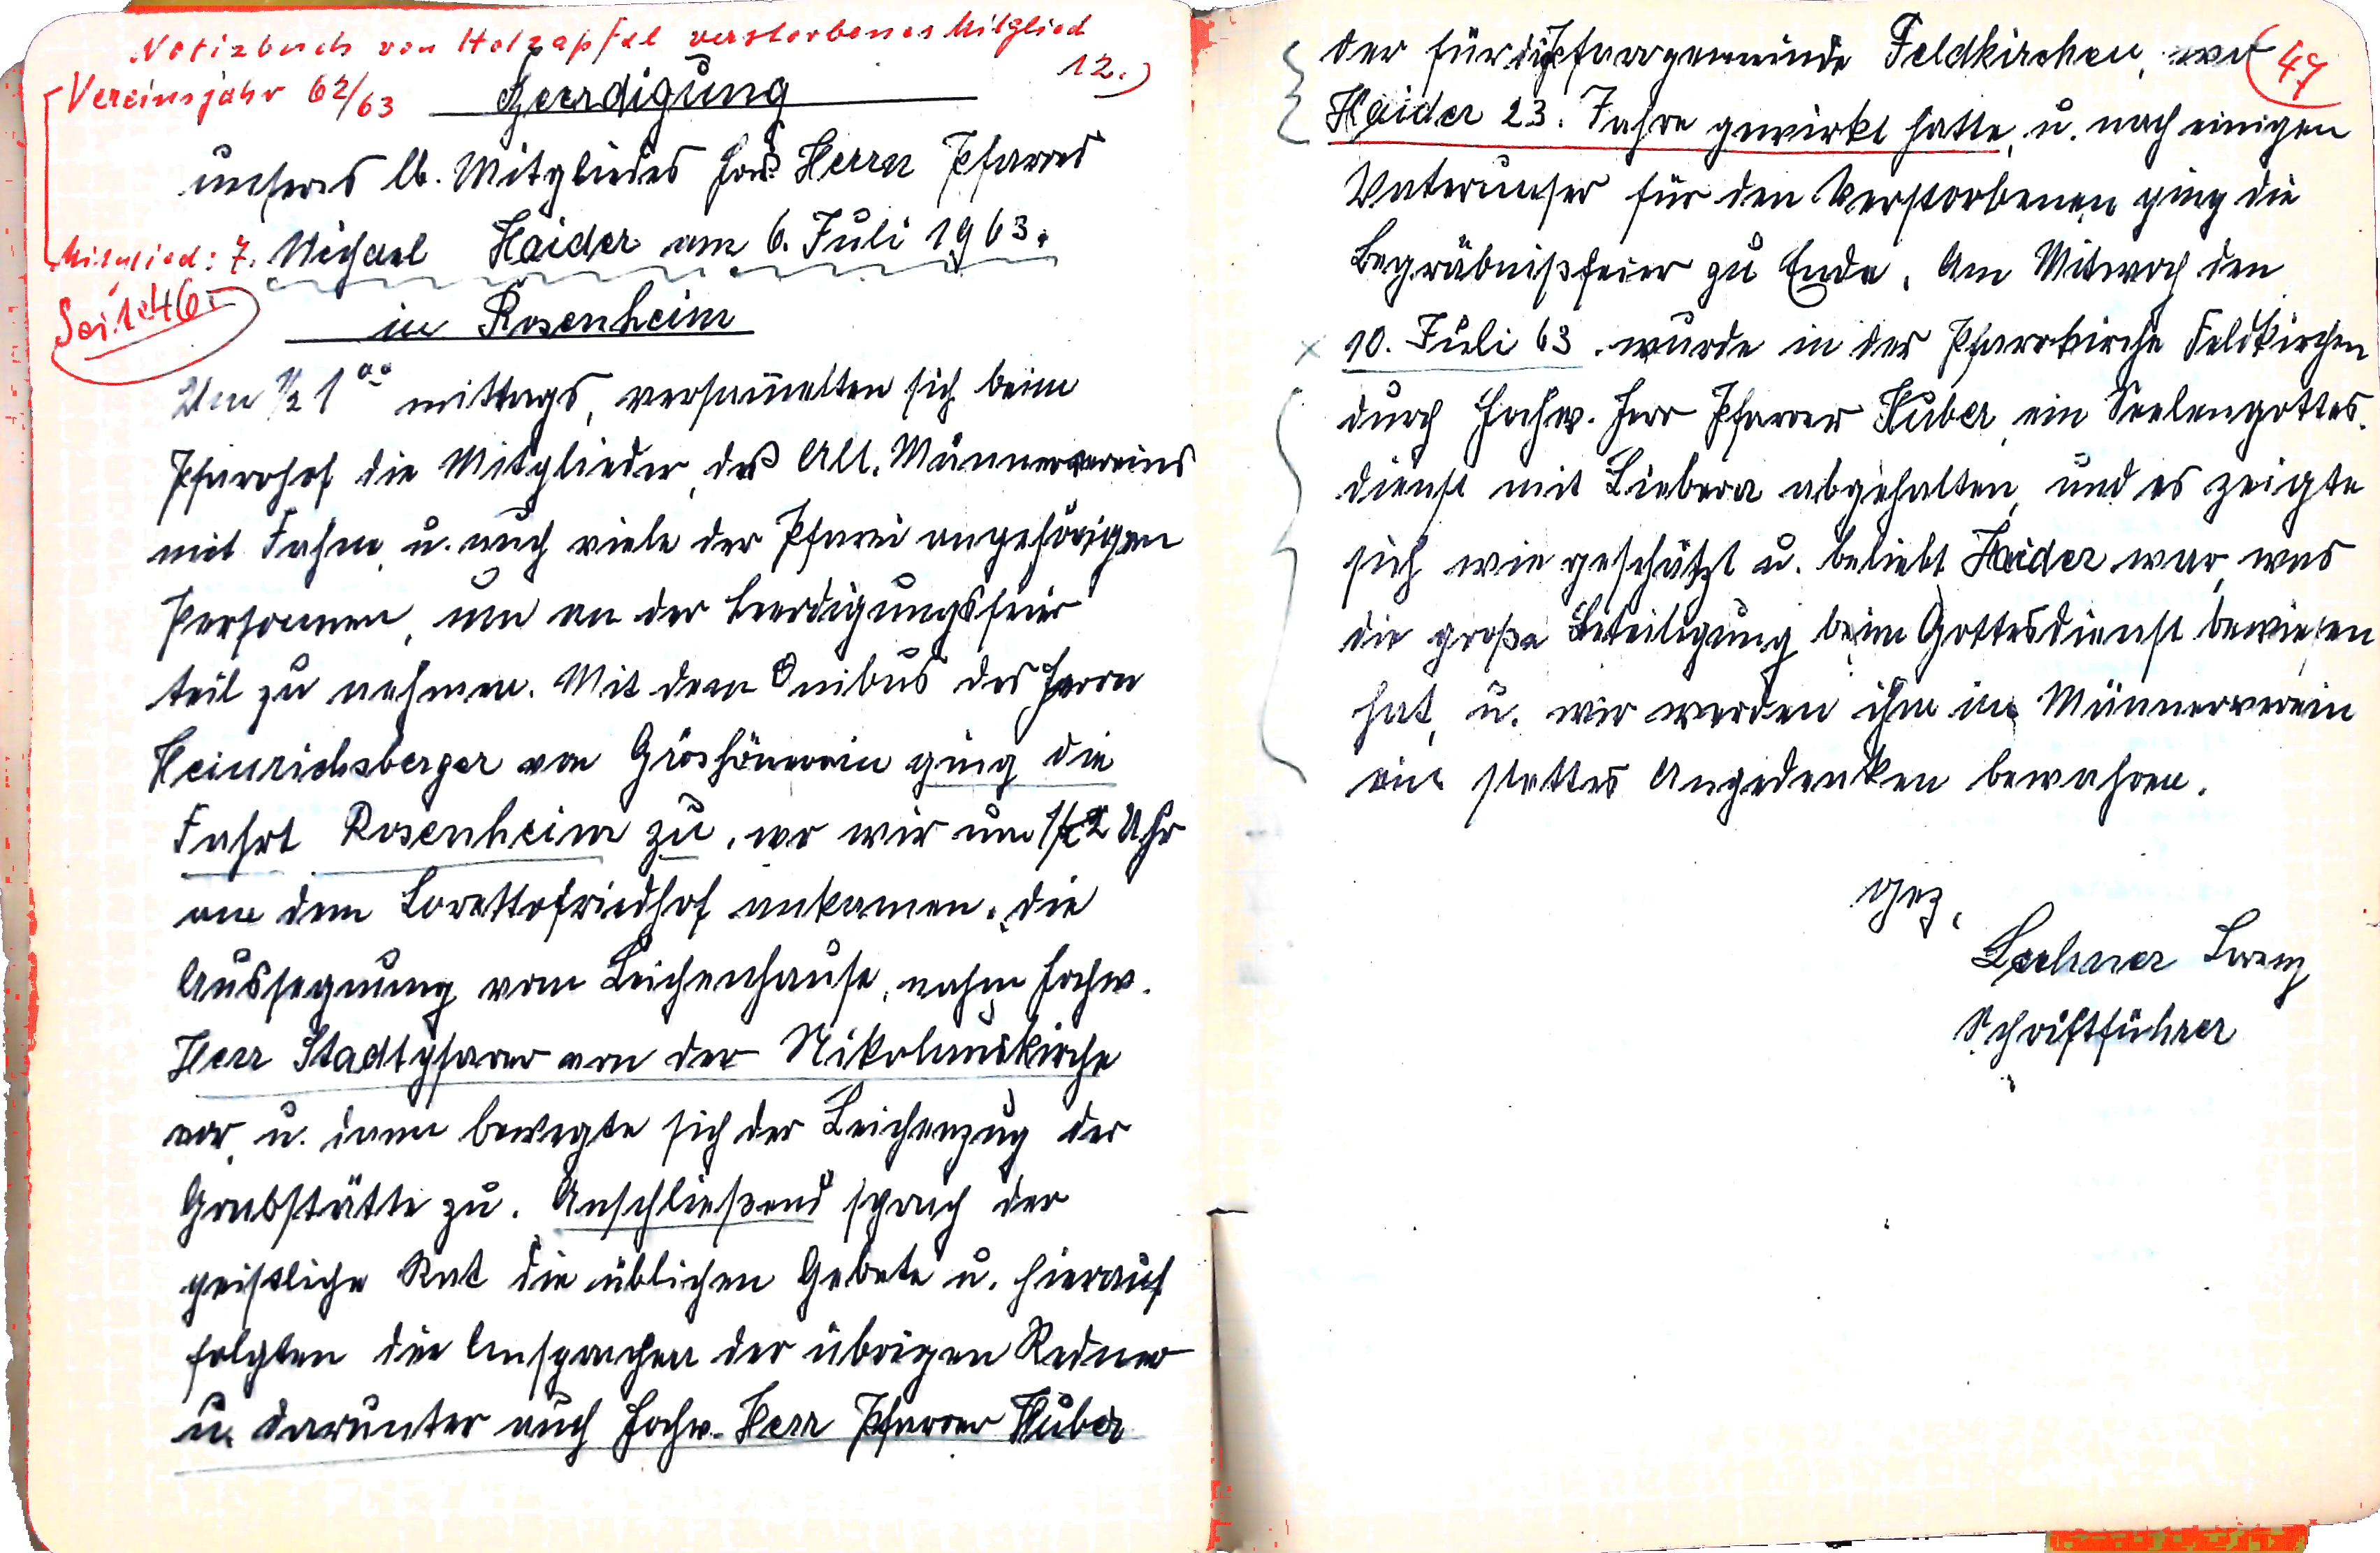 Notizbuch von Holzapfel verstorbenes Mitglied
12.)
Vereinsjahr 62/63
Beerdigung
unseres lb. Mitgliedes Herrn Pfarres
Mitglied: 7. Michael Haider am 6. Juli 1963.
Sei. 46
in Rosenheim
Um ½ 1 oo mittags, versam̄elten sich beim
Pfarrhof die Mitglieder, deß All. Männervereins
mit Fahne u. auch viele der Pfarei angehörigen
Personnen, um an der Beerdigungsfeier
teil zu nehmen. Mit dem Omibus des Herrn
Heinrichsberger von ging die
Fahrt Rosenheim zu, wo wir um 1/2 2 Uhr
am dem Lorettofriedhof ankamen. die
Aussegnung vom Leichenhause, nahm Hochw.
Herr Stadtpfarrer von der Nikolauskirche
vor, u. dann bewegte sich der Leichenzug der
Grabstätte zu. Anschließend sprach der
geistliche Rat die üblichen Gebete u. hierauf
folgten die Ansprachen der übrigen Redner
u. darunter auch Hochw. Herr Pfarrer Huber
47
der für die Pfarrgemeinde Feldkirchen, wo
Haider 23. Jahre gewirkt hatte, u. nach einigen
Vaterunser für den Verstorbenen ging die
Begräbnißfeier zu Ende. Am Mitwoch den
10. Juli 63. wurde in der Pfarrkirche Feldkirchen
durch Hochw. Herr Pfarrer Huber, ein Seelengottes-
dienst mit Liebera abgehalten, und es zeigte
sich wie geschätzt u. beliebt Haider war, was
die große Beteiligung beim Gottesdienst bewiesen
hat, u. wir werden ihm im Männerverein
ein stettes Angedenken bewahren.
gez.
Lechner Lorenz
Schriftführer